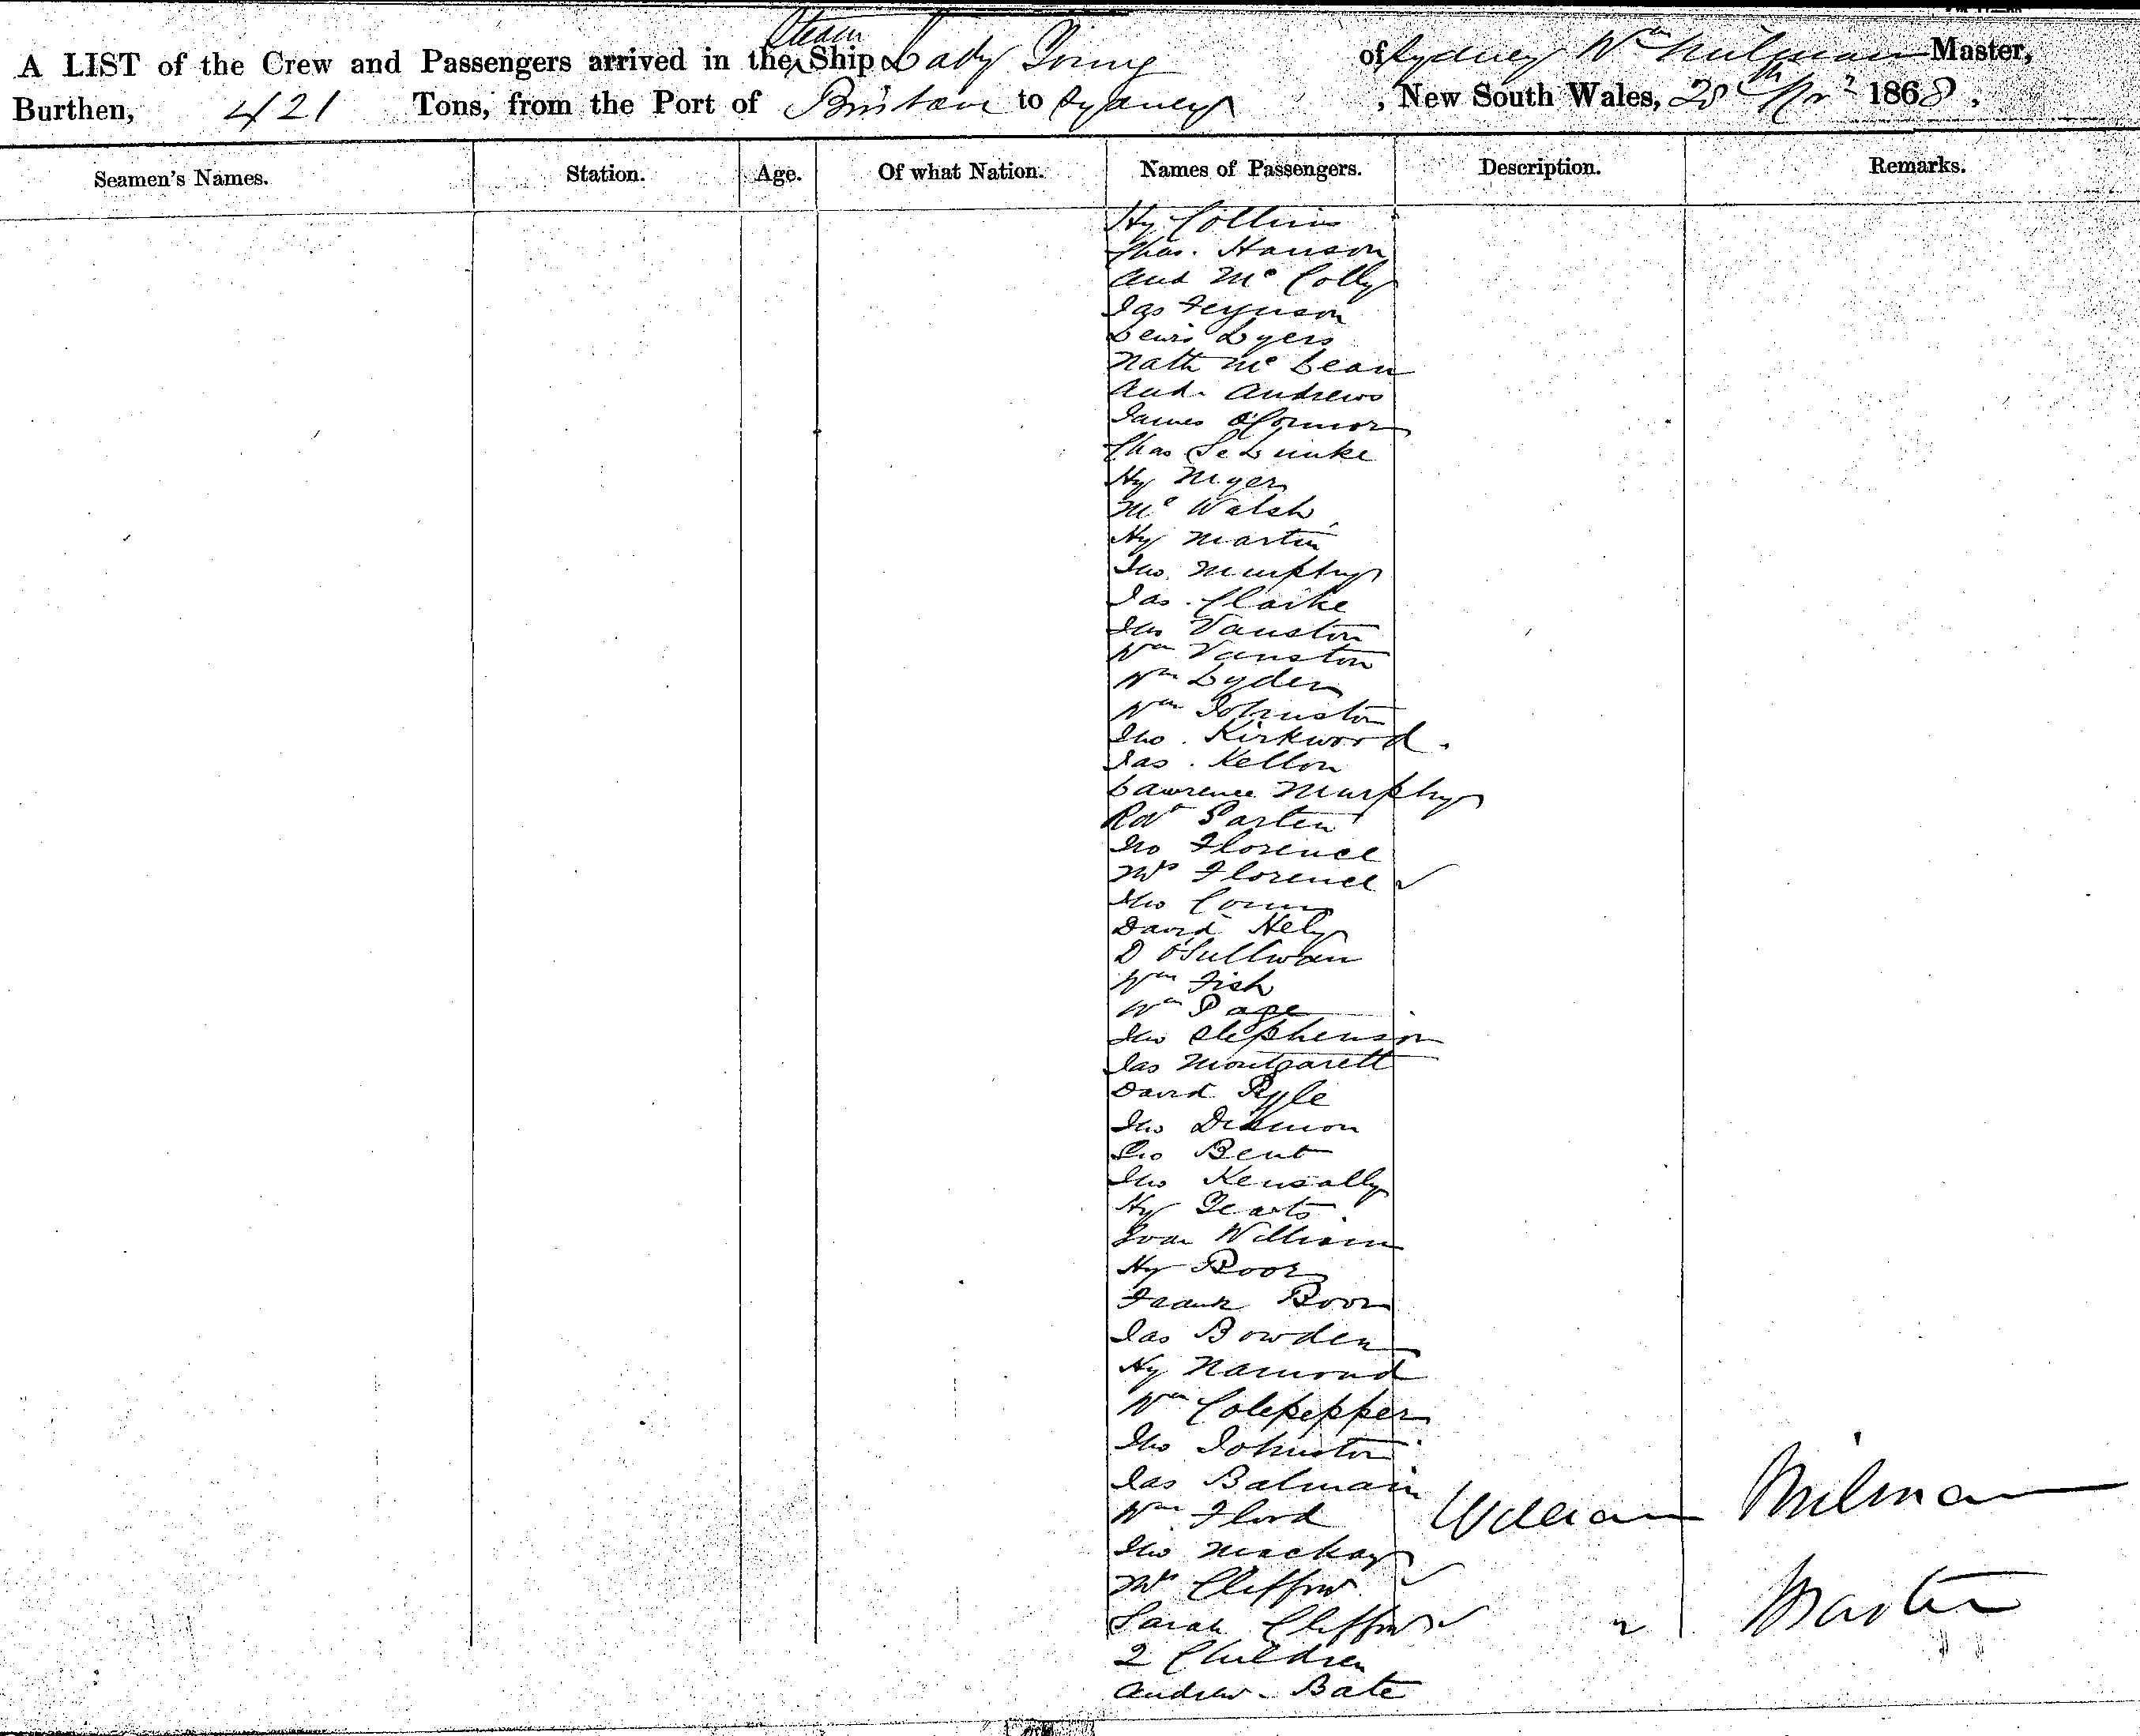 Steam
A LIST of the Crew and Passengers arrived in the Ship Lady Young of Sydney Wm Milman Master,
Burthen, 421 Tons, from the Port of Brisbane to Sydney, New South Wales, 28th Novr 1868.
Seamen's Names. Station. Age. Of what Nation. Names of Passengers. Description. Remarks.
Hy Collins
Chas. Hanson
And Mc Colly
Jas Ferguson
Lewis Lyers
Nath Mc Lean
And. Andrews
James O'Connor
Chas
Hy Myers
Mc Walsh
Hy Martin
Jno. Murphy
Jas. Clarke
Jno Vanston
Wm Vanston
Wm Lyden
Wm Johnston
Jno. Kirkwood.
Jas. Kellon
Lawrence Murphy
Robt Garten
Jno Florence
Mrs Florence
Jno
David Hely
D O'Sullivan
Wm Fish
Wm Page
Jno Stephenson
Jas Montgarett
David Pyle
Jno
Geo Bent
Jno Kensally
Hy
William
Hy Boor
Frank Boon
Jas Bowden
Hy Hamond
Wm Colepepper
Jno Johnston
Jas Balmain
Wm Flood William Milman
Jno Mackay
Mrs Clifford Master
Sarah Clifford "
2 Children
Andrew Bate